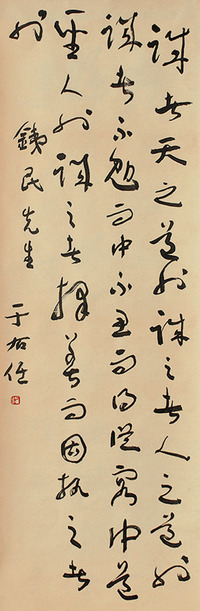 誠者天之道也誠之者人之道也
誠者不勉而中不思而得從容中道
聖人也誠之者擇善而固執之者
也
銕民先生
于右任